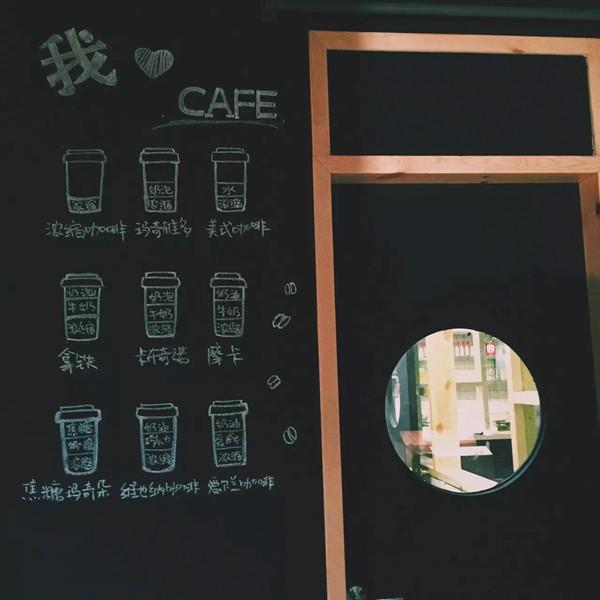 我
CAFE
浓缩
奶泡
浓缩
水
浓缩
浓缩咖啡 玛奇雅多 美式咖啡
奶泡
牛奶
浓缩
奶泡
牛奶
浓缩
奶油
牛奶
浓缩
拿铁 卡布奇诺 摩卡
焦糖
奶泡
浓缩
奶油
巧克力
浓缩
奶油
浓缩
焦糖玛奇朵 维也纳咖啡 爱尔兰咖啡